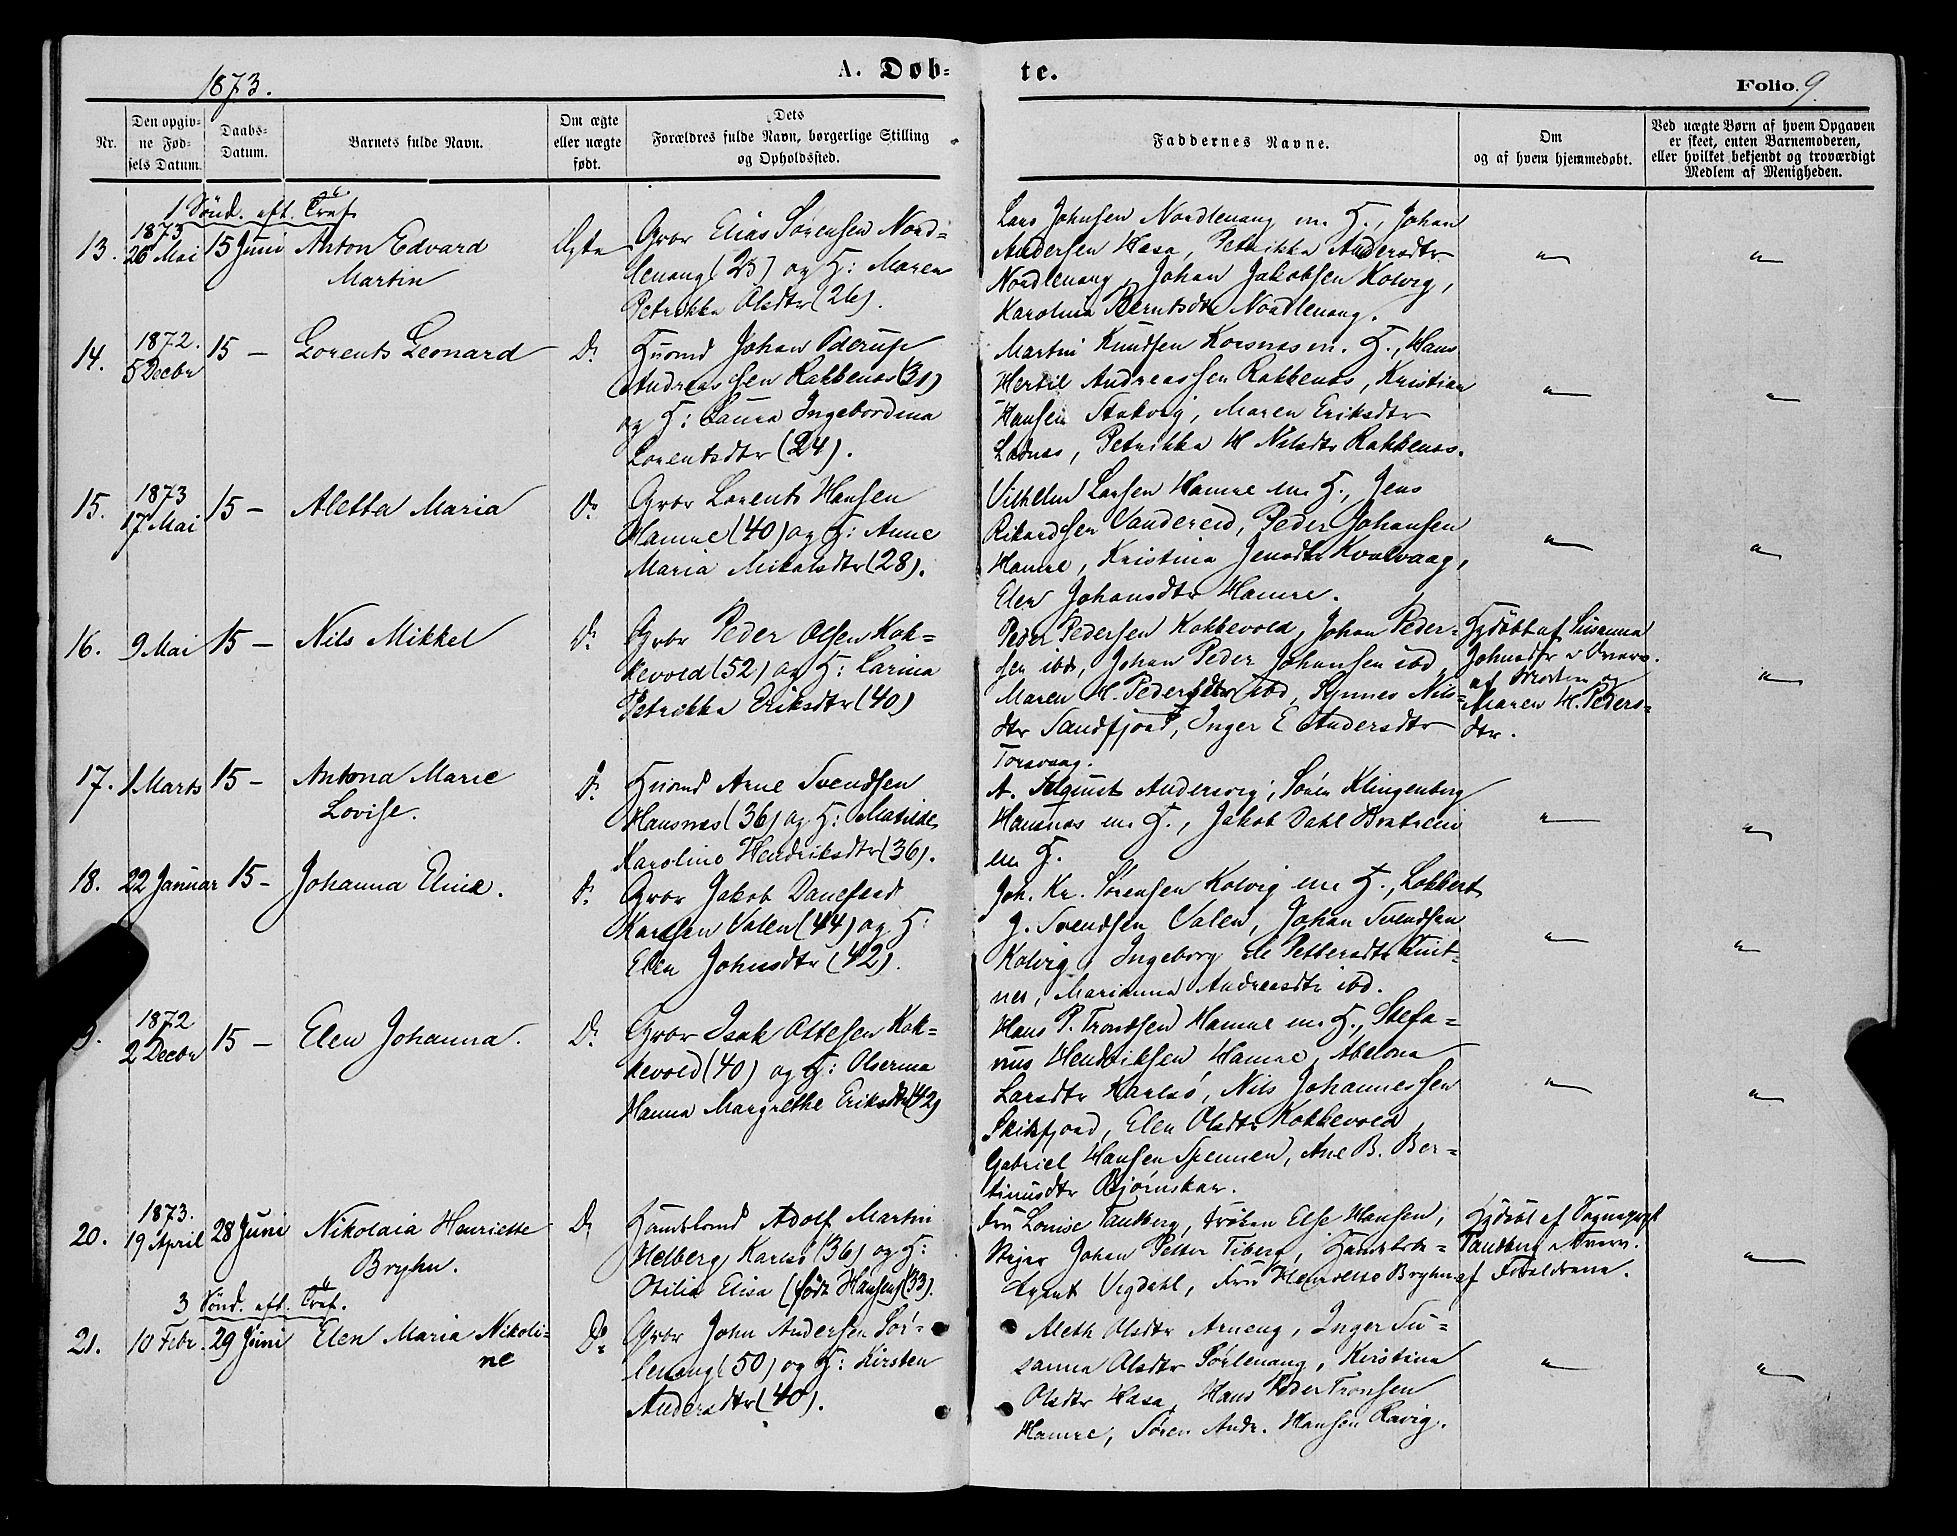 1873.
A. Døb-
te.
Folio 9.
Nr.
Den opgiv-
ne Fød-
sels Datum.
Daabs-
Datum.
Barnets fulde Navn.
Om ægte
eller uægte
født.
Dets
Forældres fulde Navn, borgerlige Stilling
og Opholdssted.
Faddernes Navne.
Om
og af hvem hjemmedøbt.
Ved uægte Børn af hvem Opgaven
er skeet, enten Barnemoderen,
eller hvilket bekjendt og troværdigt
Medlem af Menigheden.
1 Sönd. eft. Tref.
13.
1873
26 Mai
15 Juni
Anton Edvard
Martin
Ægte
Gbr Elias Sørensen Nord-
lenang (25) og H: Maren
Petrikka Olsdtr (26).
Lars Johnsen Nordlenang m. H., Johan
Andersen Hasa, Petrikka Andersdtr
Nordlenang, Johan Jakobsen Kolvig,
Karolina Berntsdtr Nordlenang.
"
"
14.
1872.
5 Decbr
15 –
Lorents Leonard
Do
Husmd Johan Oderup
Andreassen Rakkenes (31)
og H: Laura Ingebordina
Lorentsdtr (24).
Martin Knudsen Korsnes m. H., Hans
Hertil Andreassen Rakkenes, Kristian
Hansen Stakvig, Maren Eriksdtr
Lodnes, Petrikka H Nilsdtr Rakkenes.
"
"
15.
1873
17 Mai
15 –
Aletta Maria
Do
Gbr Lorents Hansen
Hamre (40) og H: Anne
Maria Mikalsdtr (28).
Vilhelm Larsen Hamre m H., Jens
Rikardsen Vandereid, Peder Johansen
Hamre, Kristina Jensdtr Kvalvaag,
Elen Johansdtr Hamre.
"
"
16.
9 Mai
15 –
Nils Mikkel
Do
Gbr Peder Olsen Kok-
kevold (52) og H: Larina
Petrikka Eriksdtr (40)
Peder Pedersen Kokkevold, Johan Peder-
sen ibd, Johan Peder Johansen ibd,
Maren H. Pedersdtr ibd, Synnes Nils-
dtr Sandfjord, Inger E Andersdtr
Torsvaag.
Hjdöbt af Susanna
Johnsdtr
af Moderen og
Maren H. Peders-
dtr.
"
17.
1 Marts
15 –
Antona Marie
Lovise.
Do
Husmd Arne Svendsen
Hansnes (36) og H: Matilde
Karoline Hendriksdtr (36).
A. August Andersvig, Sörin Klingenberg
Hansnes m H., Jakob Dahl Bratrein
m H.
"
"
18.
22 Januar
15 –
Johanna Elina.
Do
Gbr Jakob Danefeed
Karlsen Valen (44) og H:
Elen Johnsdtr (42).
Joh. Kr. Sørensen Kolvig m H., Lokkert
J. Svendsen Valen, Johan Svendsen
Kolvig, Ingeborg Ele Pettersdtr Tuit-
nes, Marianna Andreasdtr ibd.
"
"
9.
1872
2 Decbr
15 –
Elen Johanna.
Do
Gbr Isak Ottesen Kok-
kevold (40) og H: Olserina
Hanna Margrethe Eriksdtr (42)
Hans P. Trondsen Hamre m H., Stefa-
nus Hendriksen Hamre, Abelona
Larsdtr Karlsö, Nils Johannessen
Skibsfjord, Elen Olsdtr Kokkevold
Gabriel Hansen Spennen, Ane B. Ber-
tinusdtr Bjørnskar.
"
"
20.
1873.
19 April
28 Juni
Nikolaia Henriette
Bryhn.
Do
Handelsmd Adolf Martin
Helberg Karlsö (36) og H:
Otilia Elisa (født Hansen) (33).
Fru Louise Tandberg, Frøken Else Hansen,
Johan Petter Tiberg, Handelsbe-
tjent Vegdahl, Fru Henriette Bryhn
Hjdöbt af Sognepræst
Tandberg
af Forældrene.
"
3 Sönd. eft. Tref.
21.
10 Febr.
29 Juni
Elen Maria Nikoli-
ne
Do
Gbr John Andersen Sör-
lenang (50) og H: Kirsten
Andersdtr (40).
Meth Olsdtr Arneng, Inger Su-
sanna Olsdtr Sörlenang, Kirstina
Olsdtr Hasa, Hans Peder Tronsen
Hamre, Sören Andr. Hansen Ravig.
"
"